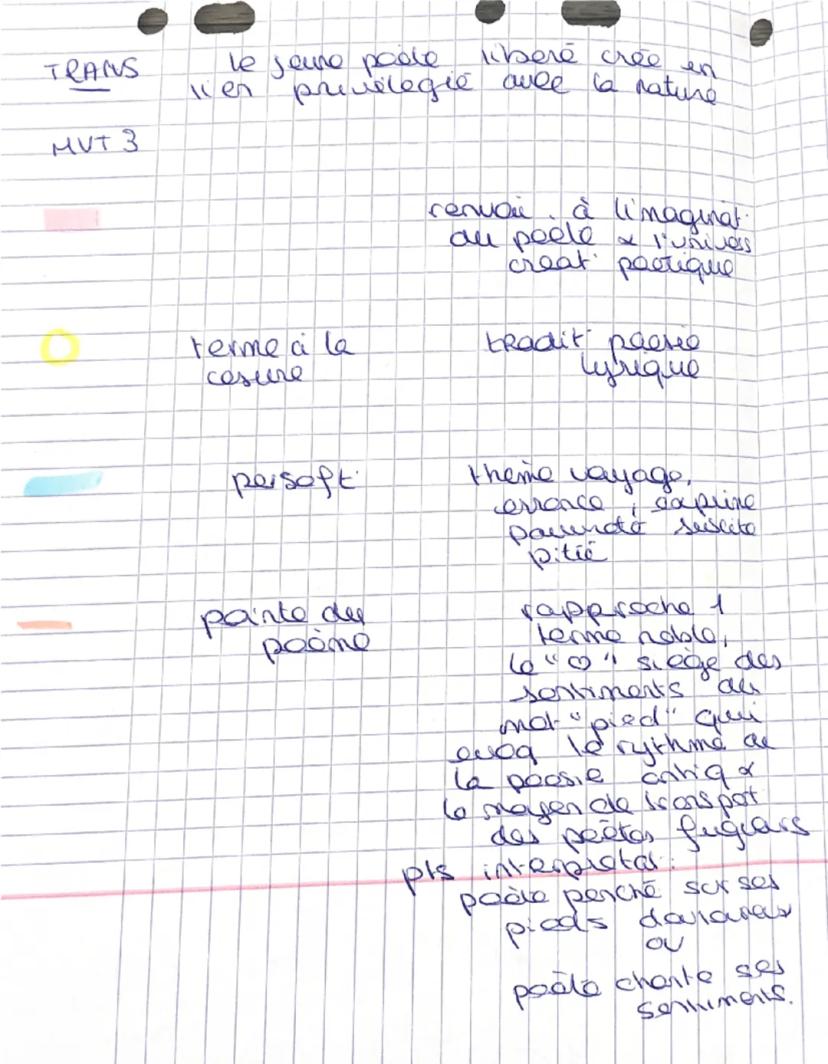 TRANS le jeune poète liberé crée en
lien privilégié avec la nature
MVT 3
renvoi à l'imaginat°
du poète & l'univers
creat° poétique
terme à la
césure
tradit° poésie
lyrique
persoft°
thème voyage,
errance, exprime
pauvreté suscite
pitié
pointe du
poème
rapproche 1
terme noble,
le "♡" siège des
sentiments du
mot "pied" qui
evoq le rythme de
la poésie antiq &
le moyen de transpot
des poètes fugeurs
pls interpretat° :
poète penché sur ses
pieds douloureux
ou
poète chante ses
sentiments.